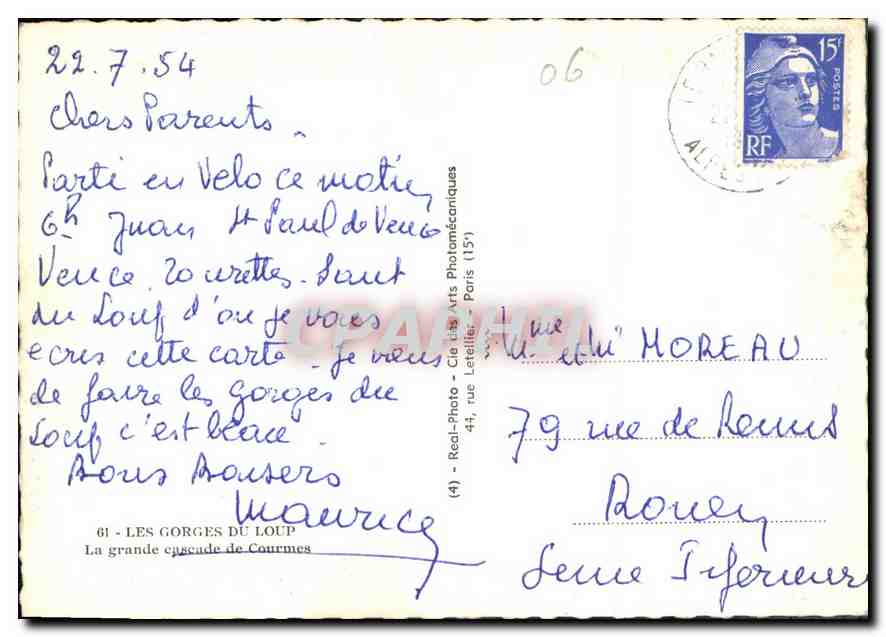 22.7.54
06
Chers Parents.
Parti en Velo ce matin
6h Juan St Paul de Vence
Vence. Tourettes. Saut
du Loup d'ou je vous
ecris cette carte. Je viens
de faire les Gorges du
Loup c'est beau.
Bons Baisers
Maurice
61 - LES GORGES DU LOUP
La grande cascade de Courmes
(4) - Real-Photo - Cie des Arts Photomécaniques
44, rue Letellier - Paris (15e)
CPARHII
15F
POSTES
RF
ALPES
Mme et Mr MOREAU
79 rue de Renard
Rouen
Seine Inferieure